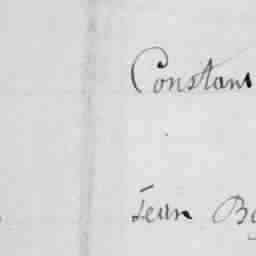 Constans
Jean Bo